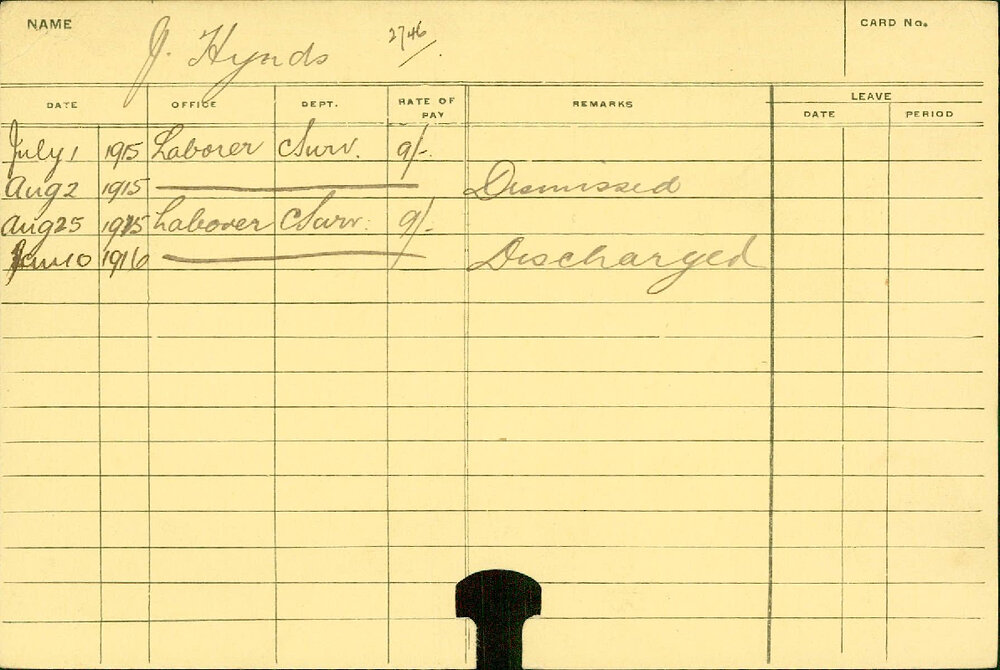 NAME J. Hynds 2746/. CARD No.
DATE OFFICE DEPT. RATE OF PAY REMARKS LEAVE
DATE PERIOD
July 1 1915 Laborer C Surv. 9/-
Aug 2 1915 Dismissed
Aug 25 1915 Laborer C Surv. 9/-
Jan 10 1916 Discharged